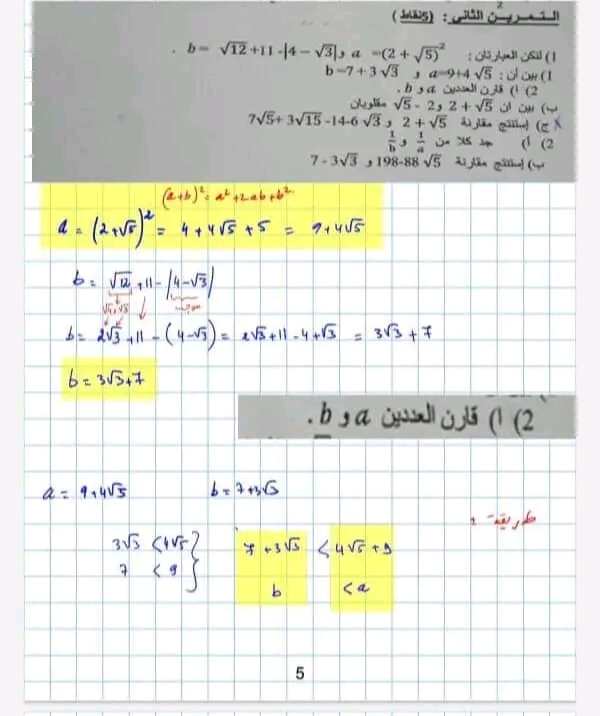 التمرين الثاني: (5نقاط)
1) لتكن العبارتان: a =(2 + √5)² و b = √12+11-|4 − √3| .
1) بين أن: a=9+4√5 و b=7+3√3
2) أ) قارن العددين a و b.
ب) بين أن 2 + √5 و 2 - √5 مقلوبان
x ج) إستنتج مقارنة 2 + √5 و 7√5+ 3√15 -14-6√3
2) أ) جد كلا من 1/a و 1/b
ب) إستنتج مقارنة 198-88√5 و 7 - 3√3
(a+b)² = a²+2ab+b²
a = (2+√5)² = 4 + 4√5 + 5 = 9+4√5
b = √12 +11 - |4-√3|
√4×√3 موجب
b = 2√3 +11 - (4-√3) = 2√3 +11 - 4+√3 = 3√3 + 7
b = 3√3+7
2) أ) قارن العددين a و b.
a = 9+4√5 b = 7+3√3
طريقة :
3√3 < 4√5 } 7 +3√3 < 4√5 +9
7 < 9 } b < a
5